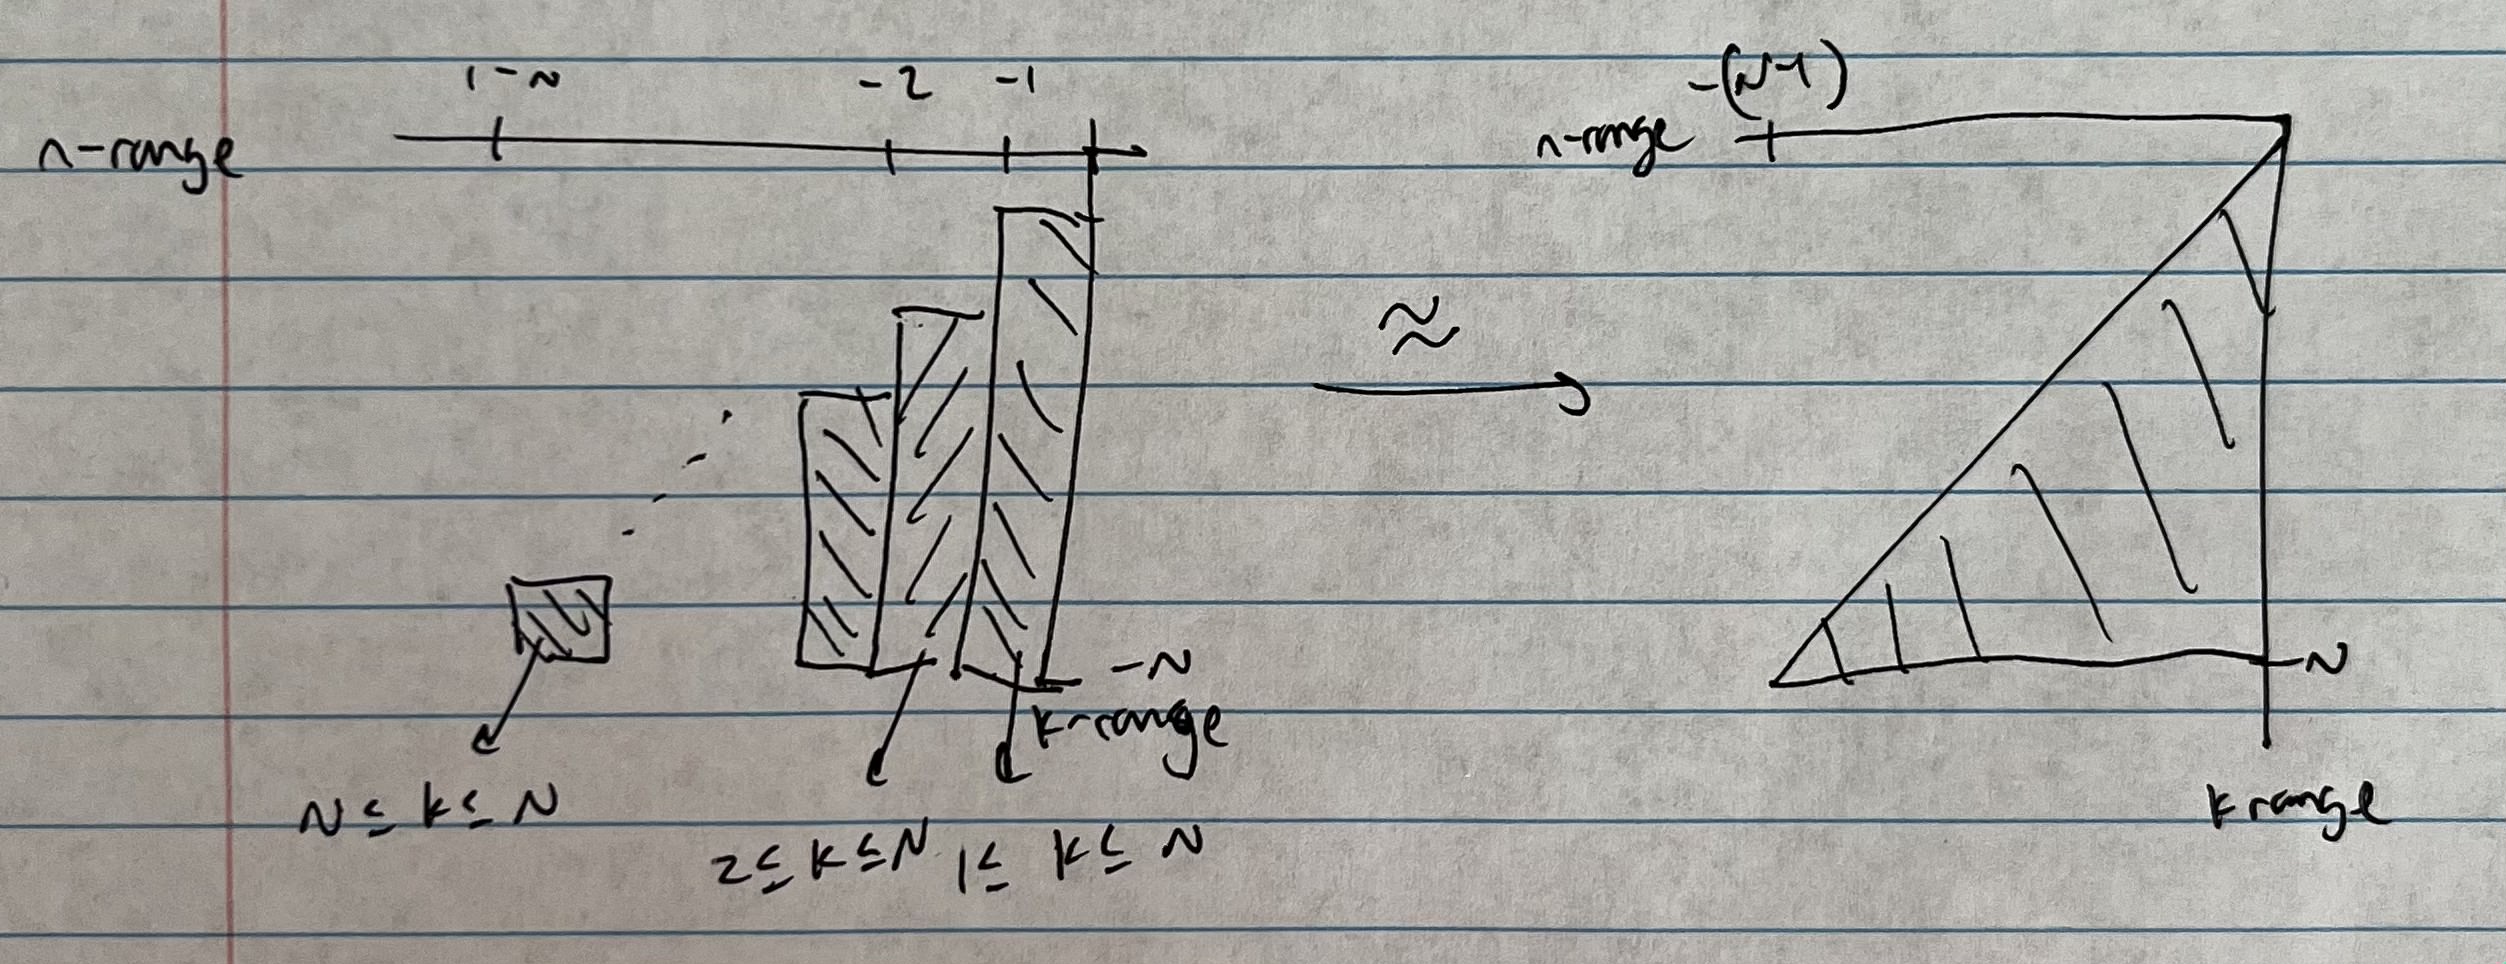 1-N -2 -1
n-range
-N
k-range
N ≤ k ≤ N
2 ≤ k ≤ N 1 ≤ k ≤ N
≈
-(N-1)
n-range
-N
k range